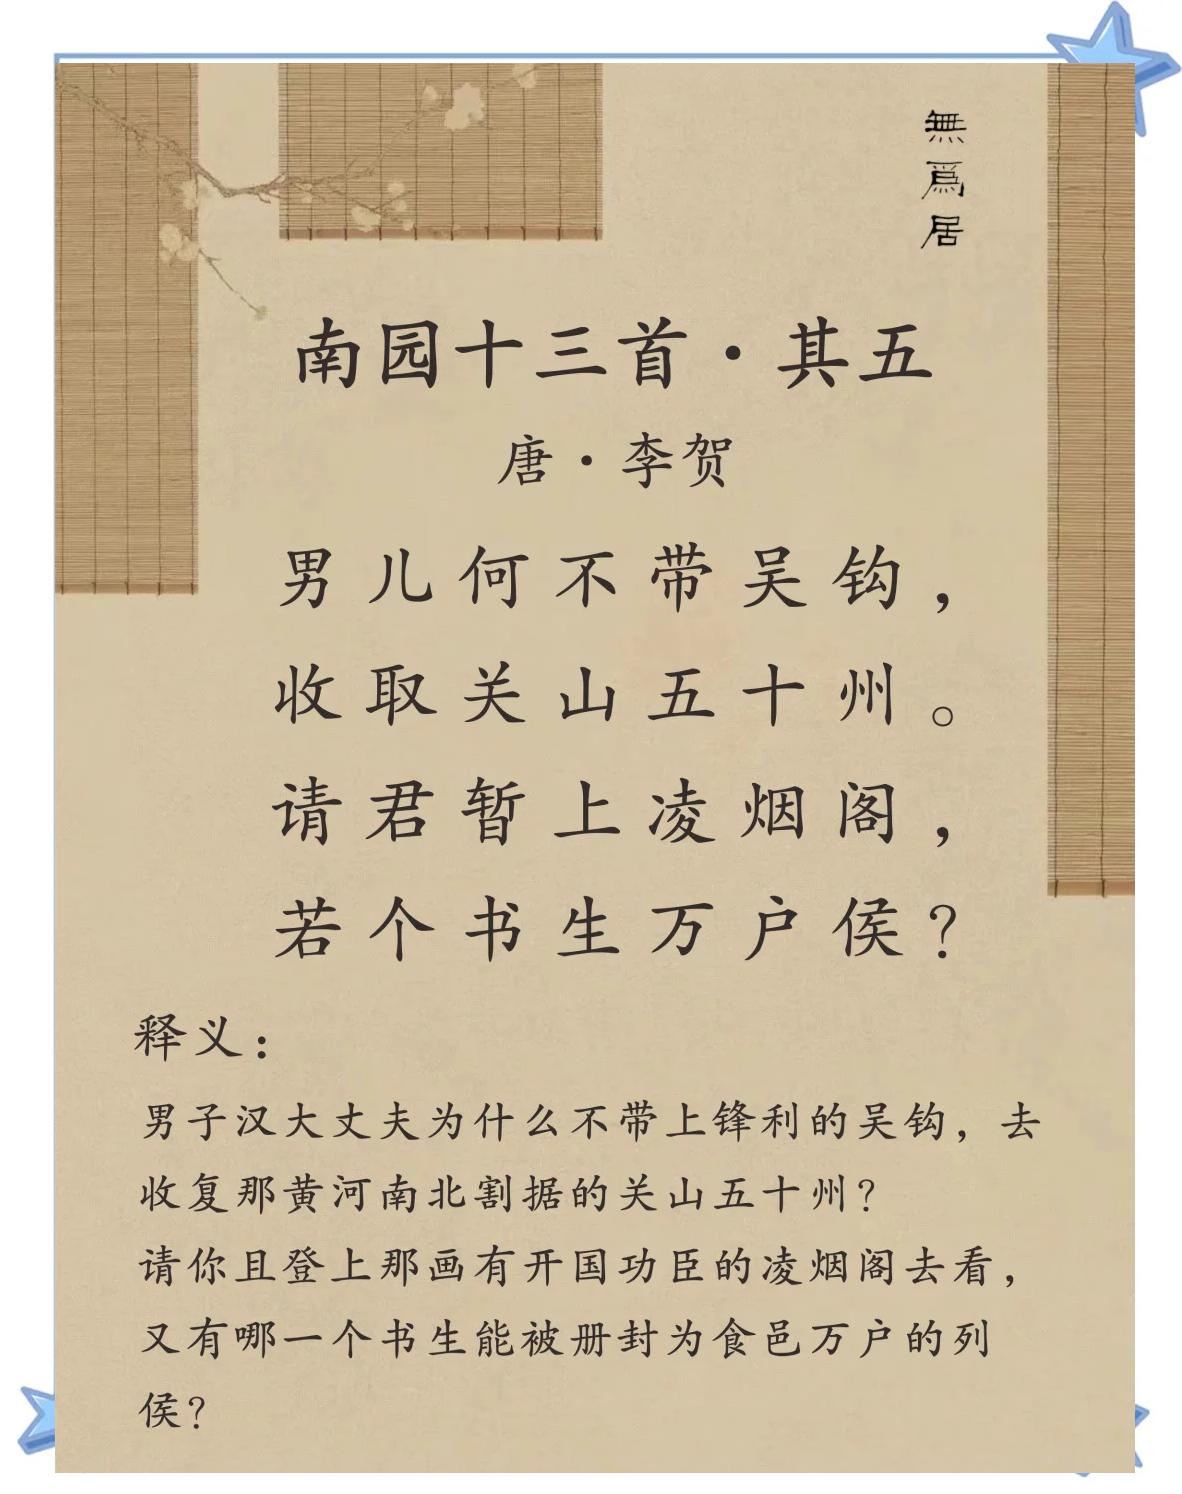 無爲居
南园十三首·其五
唐·李贺
男儿何不带吴钩，
收取关山五十州。
请君暂上凌烟阁，
若个书生万户侯？
释义：
男子汉大丈夫为什么不带上锋利的吴钩，去
收复那黄河南北割据的关山五十州？
请你且登上那画有开国功臣的凌烟阁去看，
又有哪一个书生能被册封为食邑万户的列
侯？